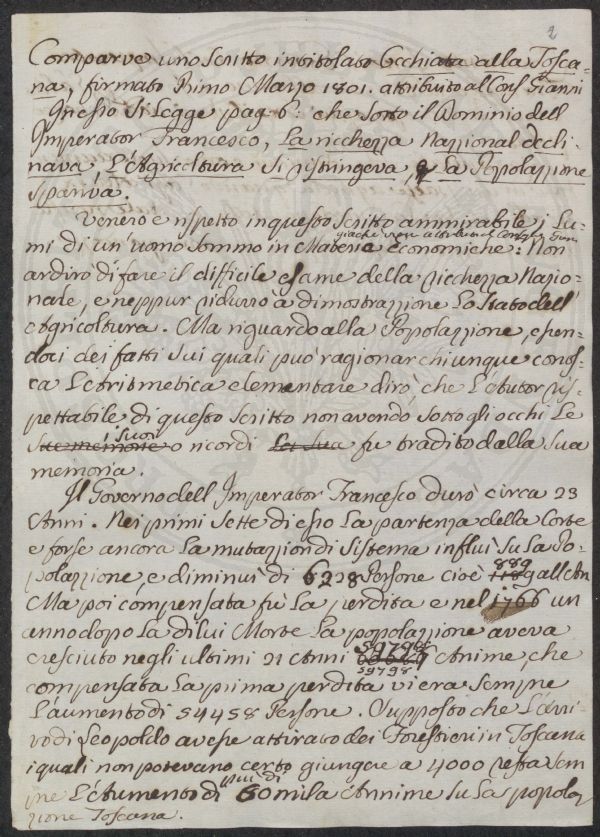 2
Comparve uno Scritto intitolato Occhiata alla Tosca-
na, firmato Primo Marzo 1801. attribuito al Cons Gianni
In esso si legge pag. 6: che sotto il Dominio dell
Imperator Francesco, La ricchezza Nazzional decli-
nava, L'Agricoltura si ristringeva, e La Popolazzione
spariva.
Venero e rispetto in questo Scritto ammirabile i Lu-
mi di un'uomo sommo in Materia economiche: Non
ardirò di fare il difficile esame della ricchezza Nazio-
nale, e neppur ridurrò à dimostrazzione Lo Stato dell'
Agricoltura. Ma riguardo alla Popolazzione, essen-
doci dei fatti sui quali può ragionar chiunque conos-
ca L'Aritmetica elementare dirò che L'Autor ris-
pettabile di questo Scritto non avendo sotto gli occhi Le
sue memorie i suoi o ricordi La sua fu tradito dalla sua
memoria.
Il Governo dell Imperator Francesco durò circa 23
Anni. Nei primi sette di esso La partenza della Corte
e forse ancora La mutazzion di Sistema influì su La Po-
polazzione, e diminuì di 6228 Persone cioè 889 all An
Ma poi compensata fù La perdita e nel 1766 un
anno dopo La di lui Morte La popolazzione aveva
cresciuto negli ultimi 21 Anni 59798 Anime, che
59798
compensata La prima perdita vi era sempre
L'aumento di 54458 Persone. Supposto che L'arri-
vo di Leopoldo avesse attirato dei Forestieri in Toscana
i quali non potevano certo giungere a 4000 resta sem
pre L'Aumento di più di 50 mila Annime su La popolaz
zione Toscana.